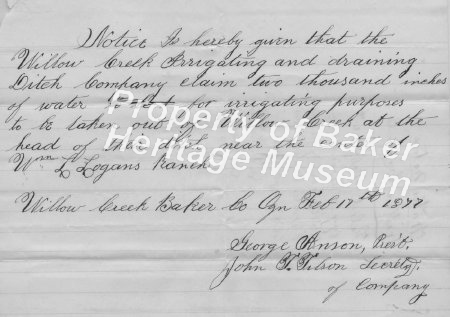 Notice Is hereby givin that the
Willow Creek Irrigating and draining
Ditch Company claim two thousand inches
of water for irrigating purposes
to be taken out of Willow Creek at the
head of near the
Wm L Logans Ranch
Willow Creek Baker Co Ogn Feb 17th 1877
George Anson, Prest.
John T. Tilson Secrety.
of Company
Property of Baker
Heritage Museum